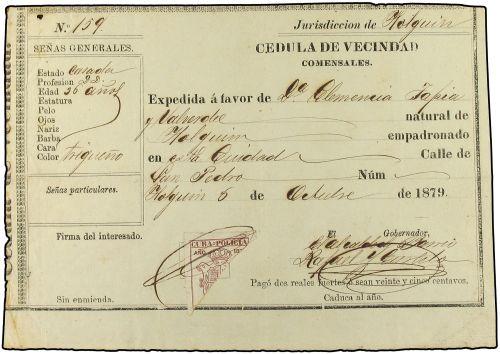 N.º 159
Jurisdiccion de Holguin
SEÑAS GENERALES.
CEDULA DE VECINDAD
COMENSALES.
Estado Casada
Profesion
Edad 36 años
Estatura
Pelo
Ojos
Nariz
Barba
Cara
Color trigueño
Señas particulares.
Firma del interesado.
Sin enmienda.
Expedida á favor de Dª Clemencia Tapia
y Valverde natural de
Holguin empadronado
en esta Ciudad Calle de
San Pedro Núm
Holguin 6 de Octubre de 1879.
El Gobernador,
CUBA-POLICIA
Rafael
Pagó dos reales fuertes ó sean veinte y cinco centavos.
Caduca al año.